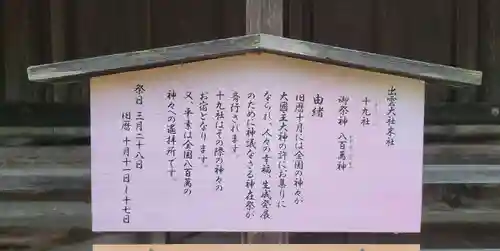 出雲大社末社
十九社
御祭神 八百萬神
由緒
旧暦十月には全国の神々が
大國主大神の許にお集りに
なられ、人々の幸福、生成発展
のために神議なさる神在祭が
斎行されます。
十九社はその際の神々の
お宿となります。
又、平素は全国八百萬の
神々への遙拝所です。
祭日 三月二十八日
旧暦 十月十一日~十七日